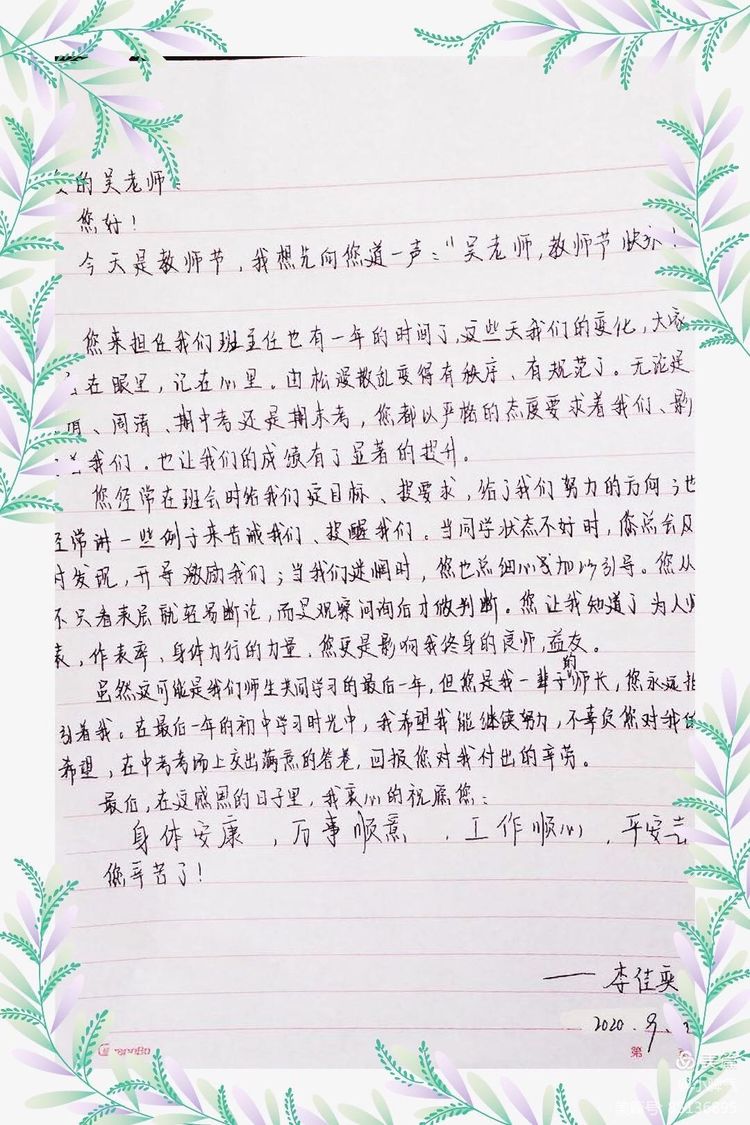 的吴老师：
您好！
今天是教师节，我想先向您道一声："吴老师，教师节快乐！
您来担任我们班主任也有一年的时间了，这些天我们的变化，大家
在眼里，记在心里。由松漫散乱变得有秩序、有规范了。无论是
周清、期中考还是期末考，您都以严格的态度要求着我们、影
着我们。也让我们的成绩有了显著的提升。
您经常在班会时给我们定目标、提要求，给了我们努力的方向；也
经常讲一些例子来告诫我们、提醒我们。当同学状态不好时，您总会及
时发现，开导激励我们；当我们迷惘时，您也总细心加以引导。您从
不只看表层就轻易断论，而是观察问询后才做判断。您让我知道了为人师
表，作表率、身体力行的力量。您更是影响我终身的良师，益友。
虽然这可能是我们师生共同学习的最后一年，但您是我一辈子的师长，您永远指
引着我。在最后一年的初中学习时光中，我希望我能继续努力，不辜负您对我的
希望，在中考考场上交出满意的答卷，回报您对我付出的辛劳。
最后，在这感恩的日子里，我衷心的祝愿您：
身体安康，万事顺意，工作顺心，平安吉
您辛苦了！
——李佳奕
2020.9.
第
美篇
美篇号: